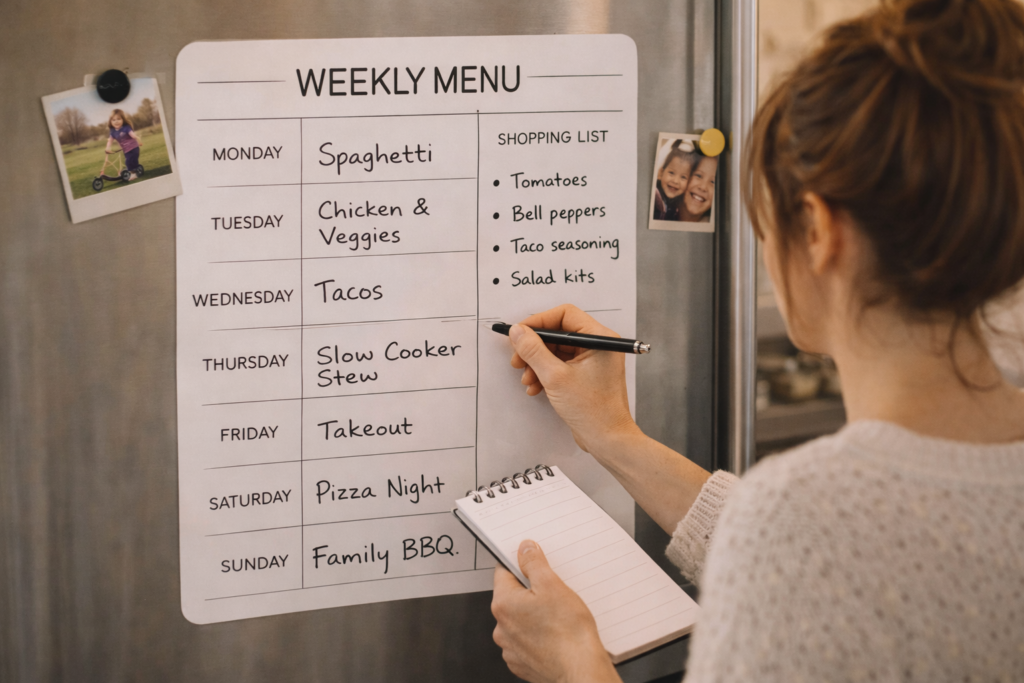 WEEKLY MENU
MONDAY
Spaghetti
TUESDAY
Chicken &
Veggies
WEDNESDAY
Tacos
THURSDAY
Slow Cooker
Stew
FRIDAY
Takeout
SATURDAY
Pizza Night
SUNDAY
Family BBQ.
SHOPPING LIST
• Tomatoes
• Bell peppers
• Taco seasoning
• Salad kits